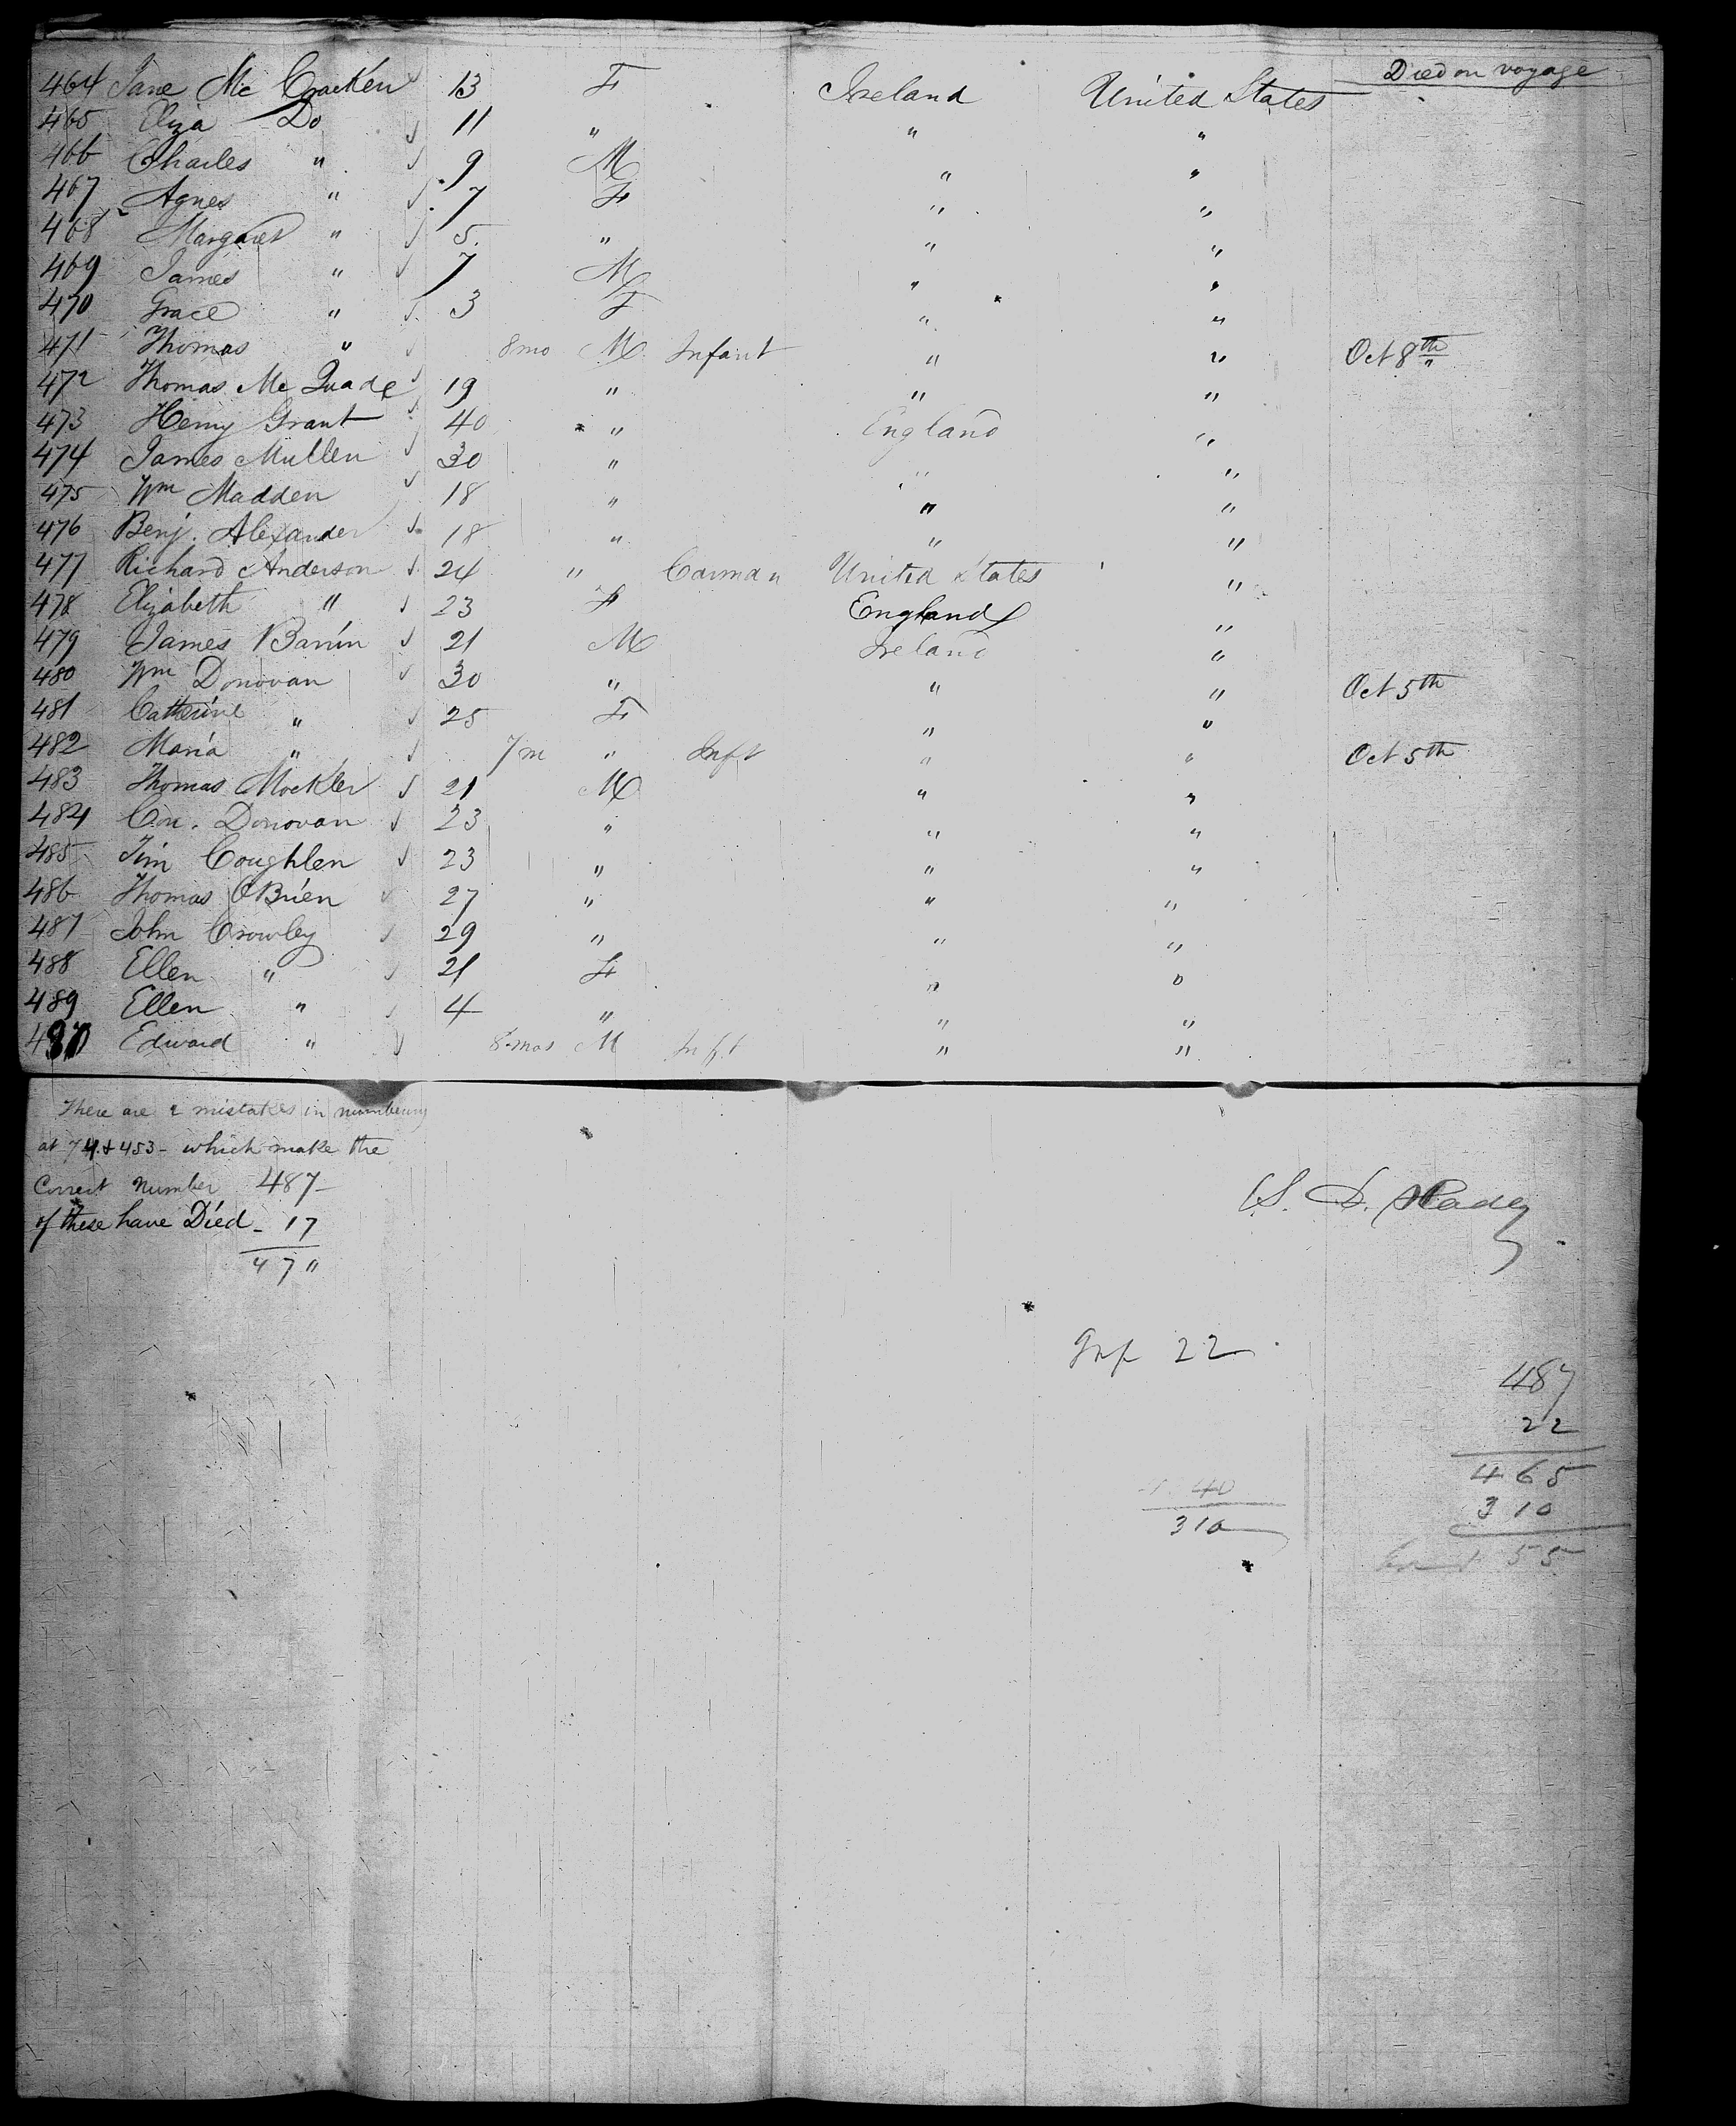 Died on voyage
464 Jane Mc Cracken 13 F Ireland United States
465 Eliza Do 11 " " "
466 Charles " 9 M " "
467 Agnes " 7 F " "
468 Margaret " 5 " " "
469 James " 7 M " "
470 Grace " 3 F " "
471 Thomas " 8 mo M Infant " " Oct 8th
472 Thomas Mc Quade 19 " " "
473 Henry Grant 40 " England "
474 James Mullen 30 " " "
475 Wm Madden 18 " " "
476 Benj. Alexander 18 " " "
477 Richard Anderson 24 " Carman United States "
478 Elizabeth " 23 F England "
479 James 21 M Ireland "
480 Wm Donovan 30 " " " Oct 5th
481 Catherine " 25 F " "
482 Maria " 7 m " Inft " " Oct 5th
483 Thomas Mockler 21 M " "
484 Con. Donovan 23 " " "
485 Tim Coughlen 23 " " "
486 Thomas OBrien 27 " " "
487 John Crowley 29 " " "
488 Ellen " 21 F " "
489 Ellen " 4 " " "
490 Edward " 8 mos M Inft " "
There are 2 mistakes in numbering
at 74 & 453 - which make the
Correct number 487
of these have Died - 17
47"
Inf 22
487
22
465
310
40
310
55